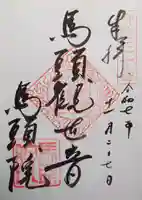 奉拝
令和七年
十一月二十七日
馬頭観世音
馬頭院